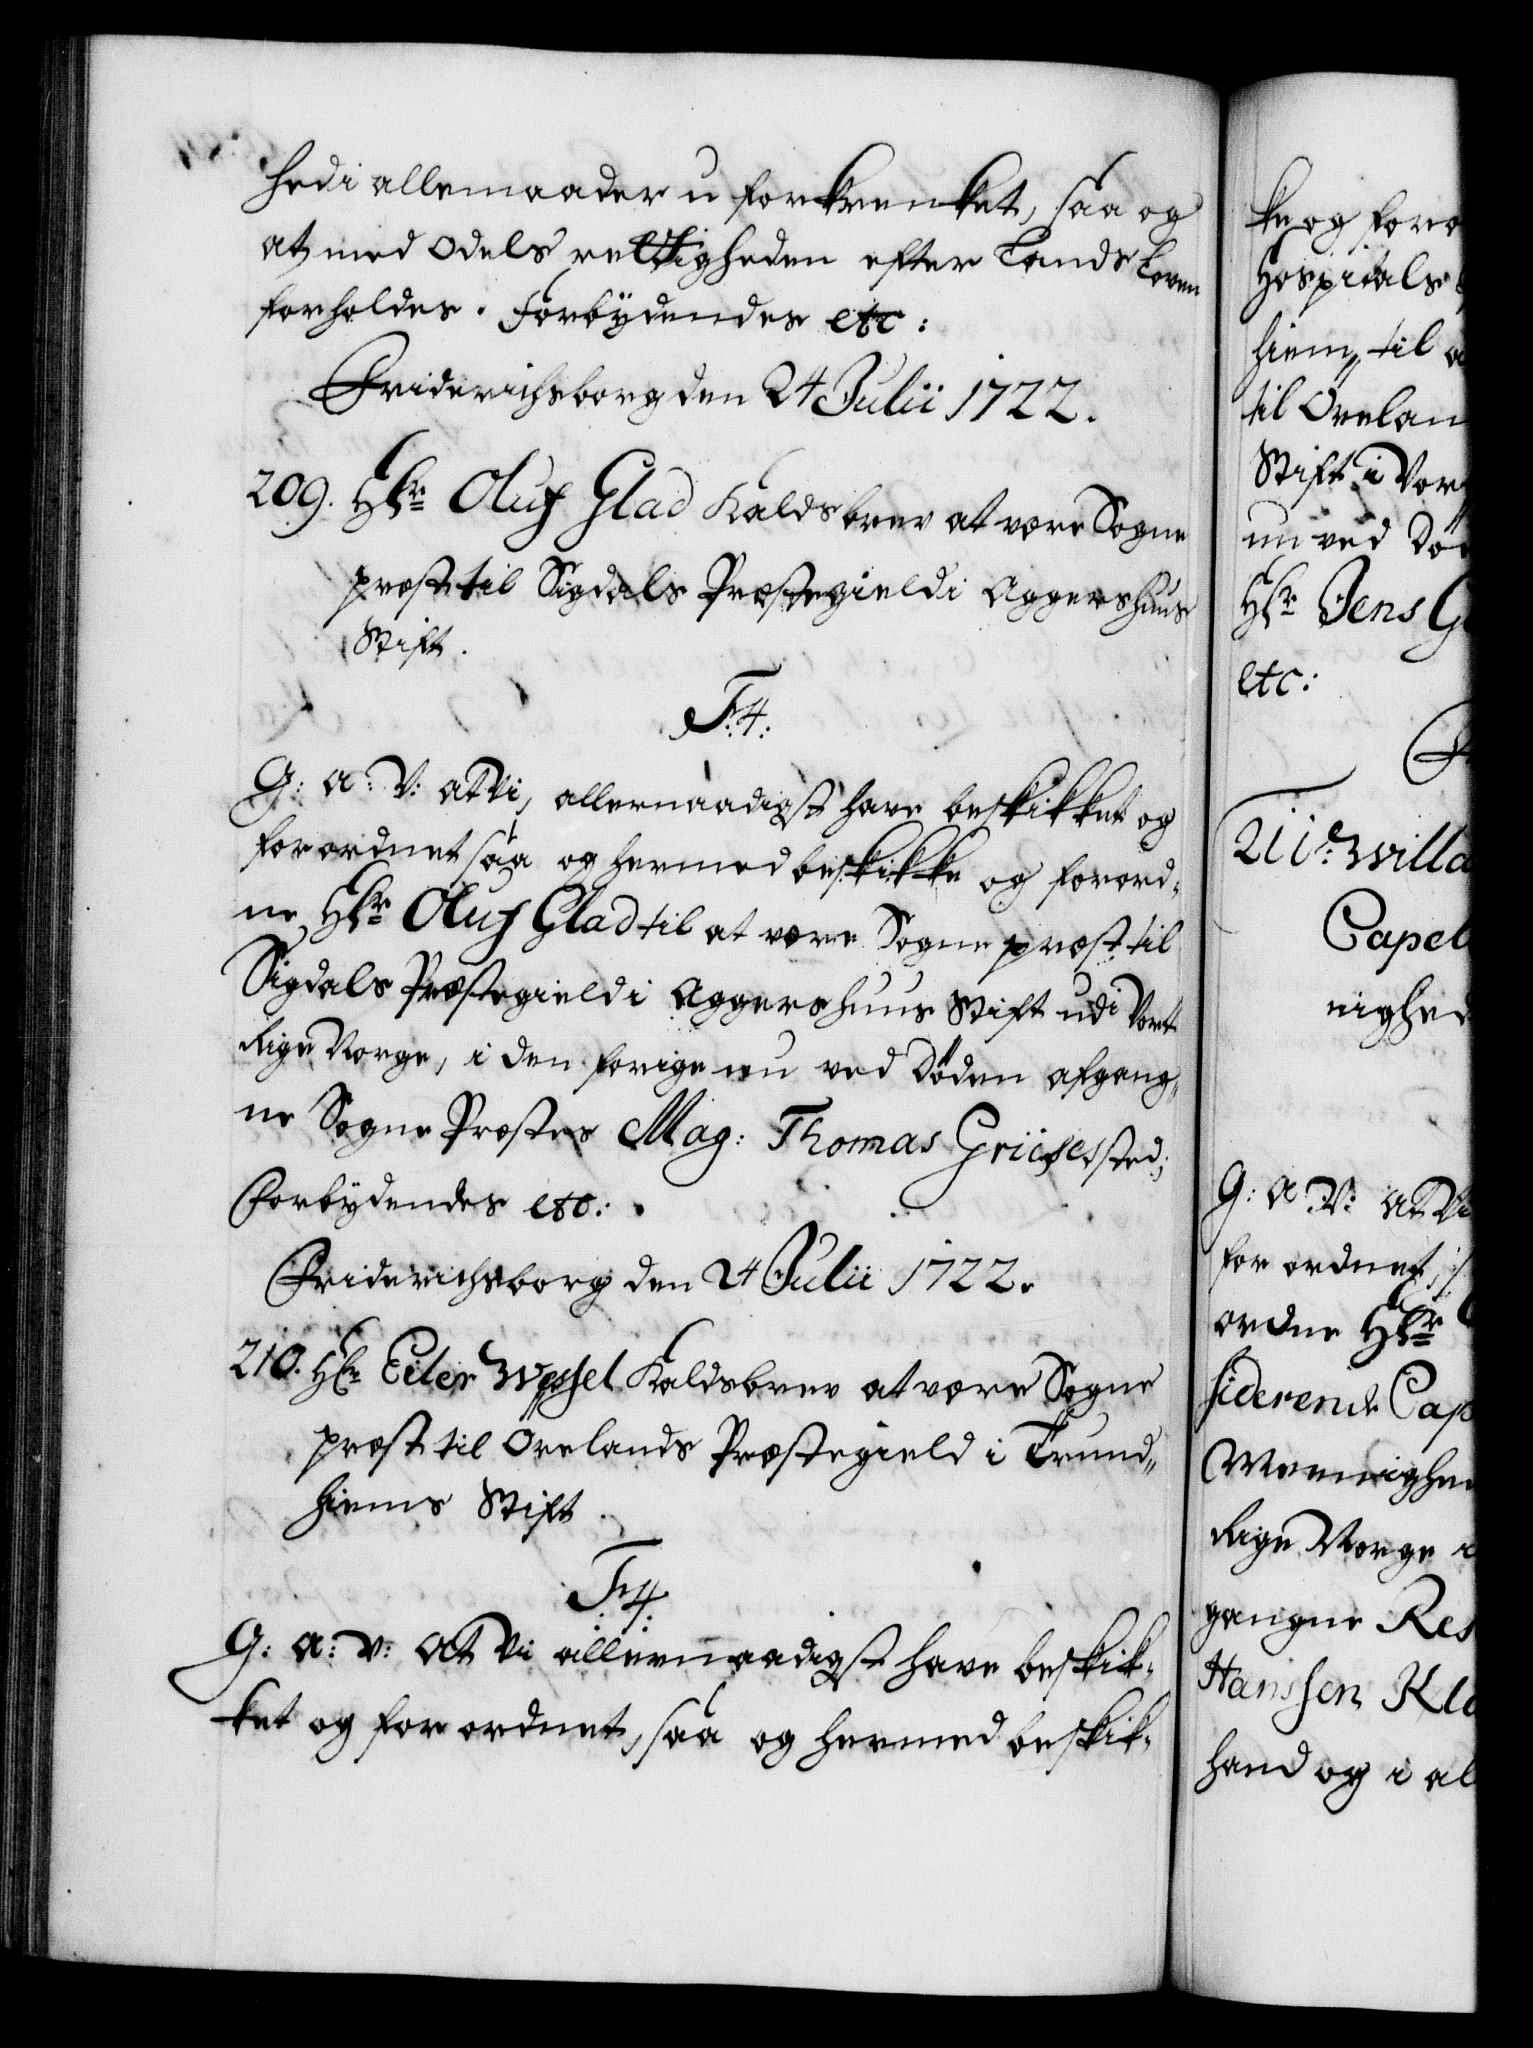 hed i allemaader u forkrenket, saa og
at med Odels rettigheden efter Lands Loven
forholdes. Forbydendes etc:
Friderichsborg den 24 Julii 1722.
209. Hr Oluf Glad Kaldsbrev at være Sogne
præst til Sigdals Præstegield i Aggershuus
Stift.
F:4:
G: A: V: at Vi, allernaadigst have beskikket og
forordnet saa og hermed beskikke og forord-
ne, Hr Oluf Glad til at være Sogne præst til
Sigdals Præstegield i Aggershuus Stift udi Vort
Rige Norge, i den forige nu ved Døden afgang-
ne Sogne Præstes Mag: Thomas Griises sted;
Forbydendes etc:
Friderichsborg den 24 Julii 1722.
210. Hr Eiler Wessel Kaldsbrev at være Sogne
præst til Ørelands Præstegield i Trund-
hiems Stift.
F:4:
G: A: V: At Vi allernaadigst have beskik-
ket og forordnet, saa og hermed beskik-
ke og foro
Hospitals
hiem, til a
til Ørelan
Stift i Vor
nu ved Dø
Hr Jens G
etc:
211. Willa
Capel
nighed
G: A: V: At Vi
for ordnet, s
ordne Hr
siderende Cap
Meenighe
Rige Norge i
gangne Res
Hanssen Kl
hand og i al